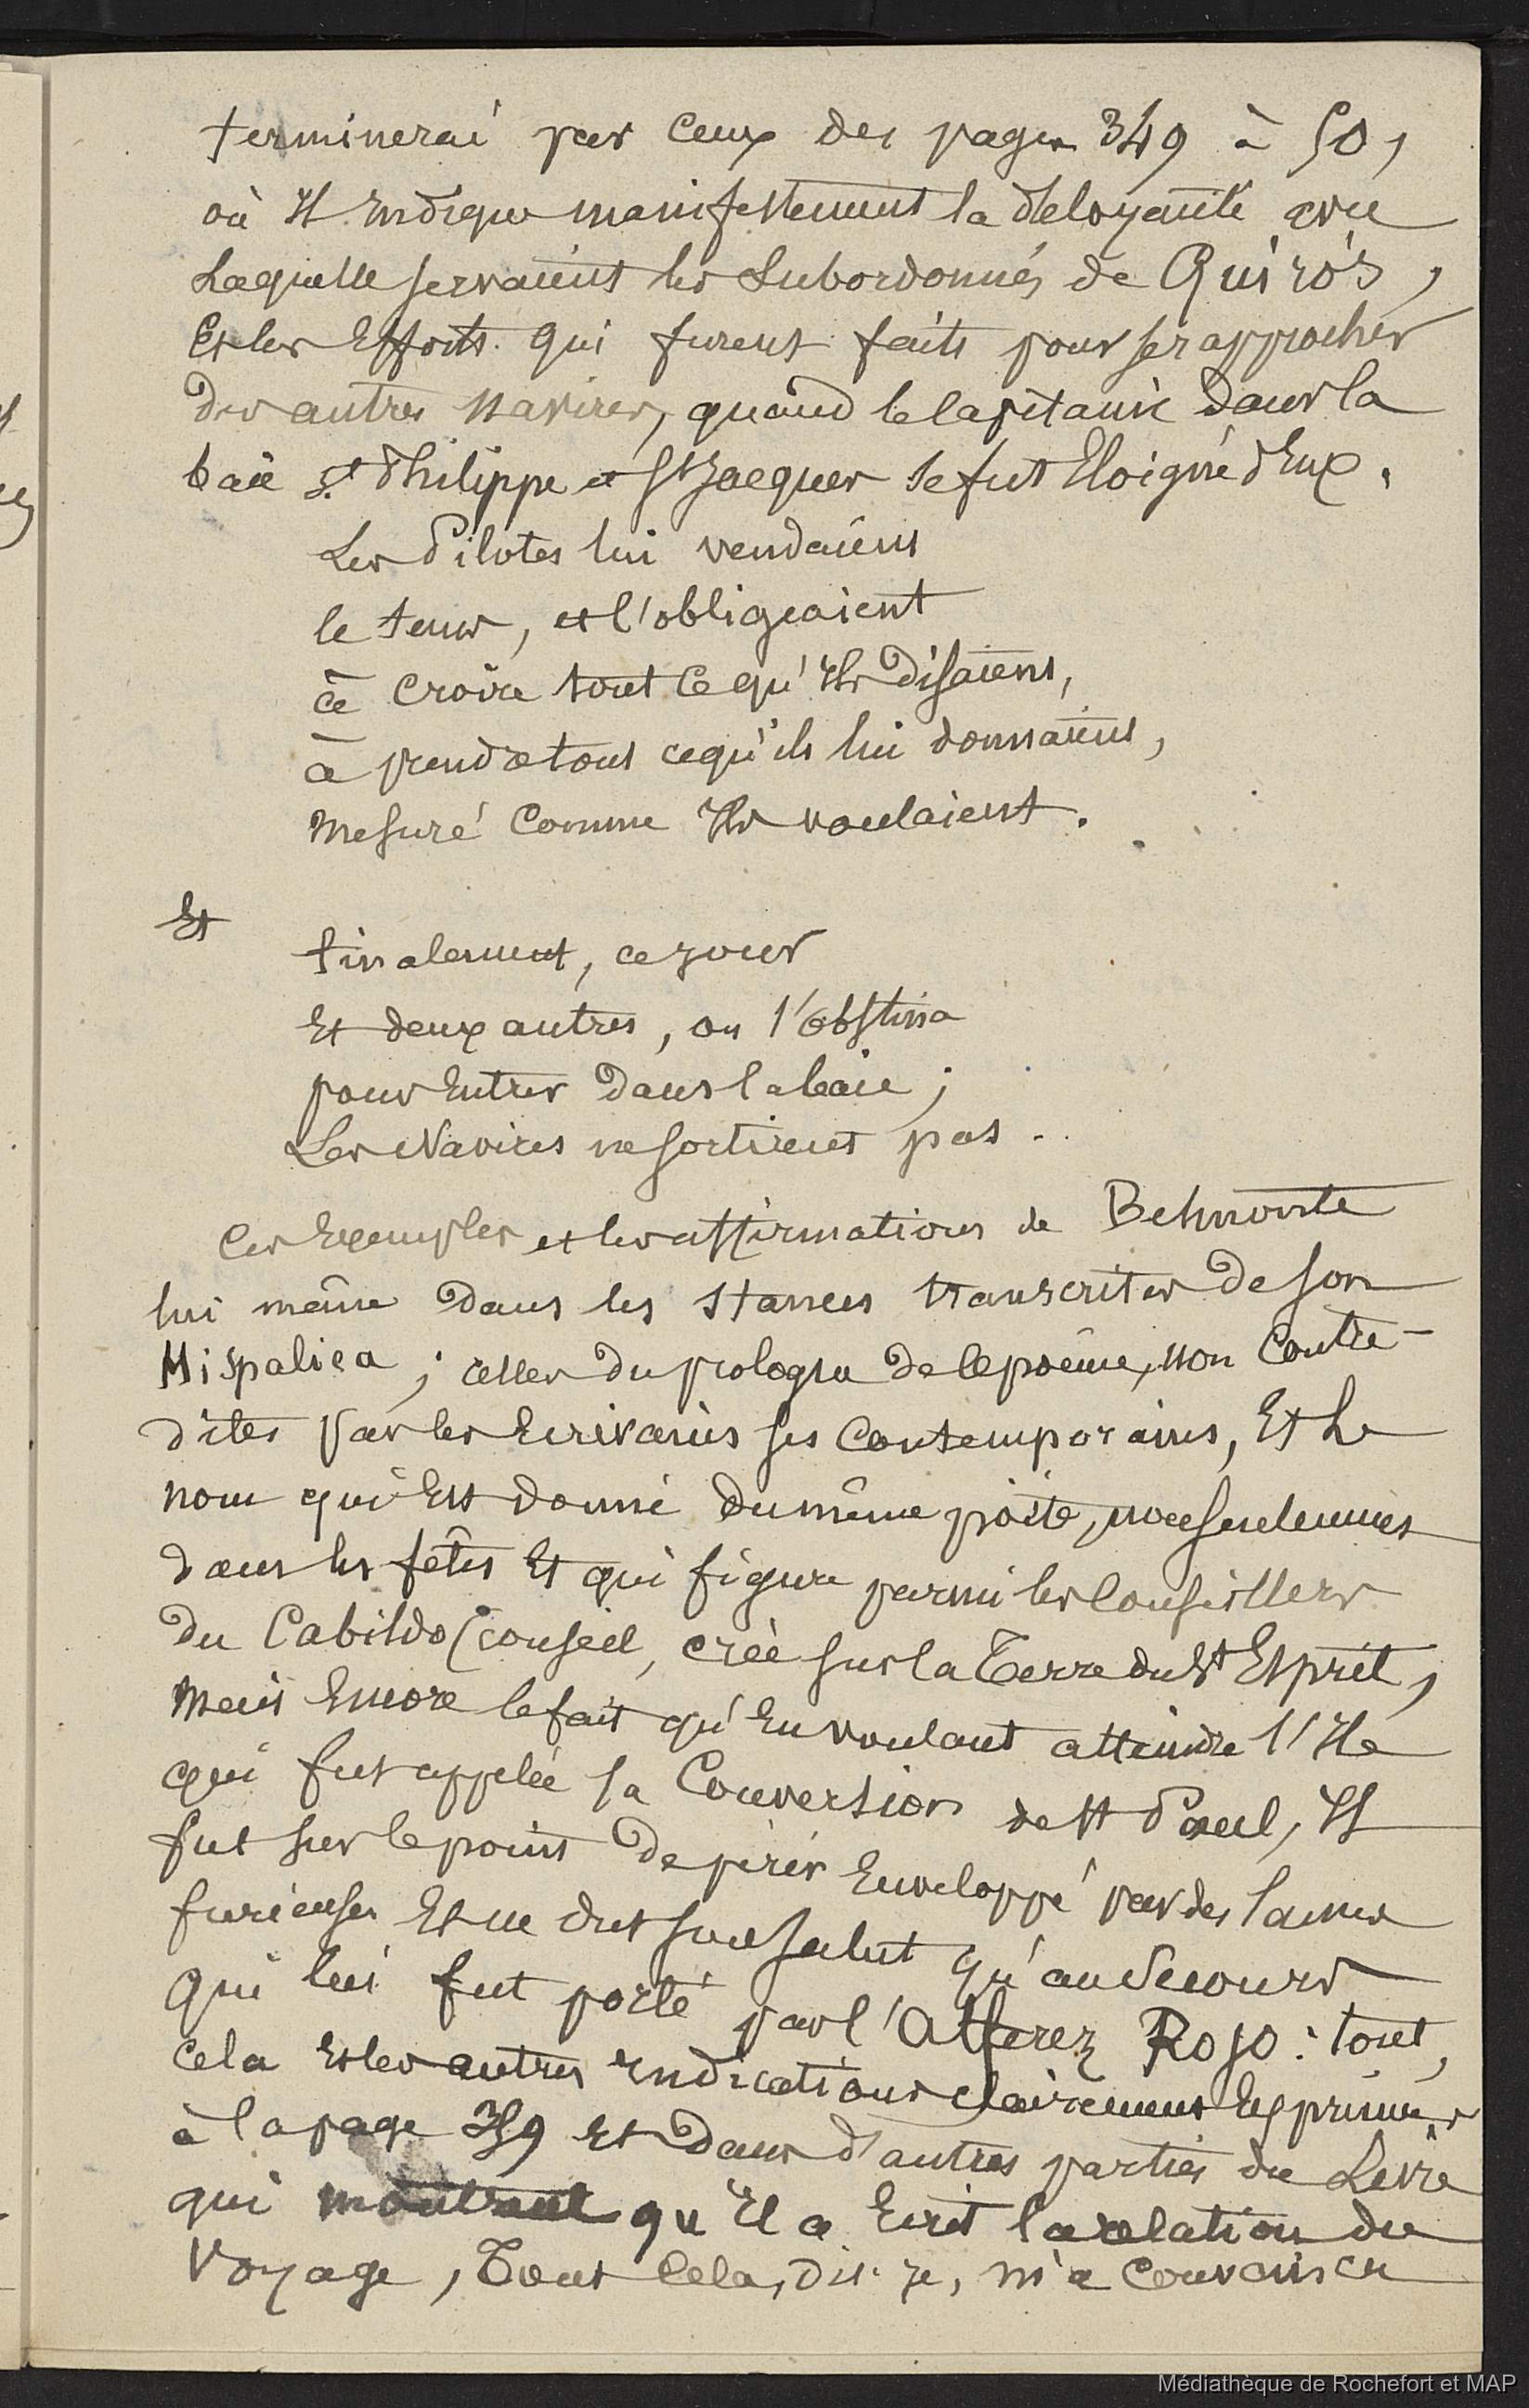 terminerai par ceux des pages 349 à 50,
où Il indique manifestement la déloyauté avec
Laquelle servaient les Subordonnés de Quirós,
Et les Efforts qui furent faits pour se rapprocher
des autres Navires, quand le Capitaine dans la
baie St Philippe et St Jacques se fut Eloigné d'Eux.
Les Pilotes lui vendaient
le tems, et l'obligeaient
à croire tout ce qu'Ils disaient,
à prendre tout ce qu'ils lui donnaient,
Mesuré Comme Ils voulaient.
Et
finalement, ce jour
Et deux autres, on s'obstina
pour Entrer dans la baie;
Les Navires ne sortirent pas.
Ces Exemples et les affirmations de Belmonte
lui même dans les Stances transcrites de son
Hispalica; celles du prologue de le poème, non Contre-
dites par les Ecrivains ses Contemporains, Et Le
nom qui Est donné du même poète, non seulement
dans les fêtes Et qui figure parmi les Conseillers
du Cabildo (conseil, créé sur la Terre du St Esprit,
Mais Encore le fait qu'En voulant atteindre l'Ile
qui fut appelée la Conversion de St Paul, Il
fut sur le point de périr Enveloppé par des lames
furieuses Et ne dut son salut qu'au Secours
qui lui fut porté par l'Alferez Rojo: tout
cela Et les autres Indications clairement Exprimées
à la page 39 Et dans d'autres parties du Livre
qui montrent qu'Il a Ecrit la relation du
Voyage, Tout Cela, dis-je, m'a Convaincu
Médiathèque de Rochefort et MAP